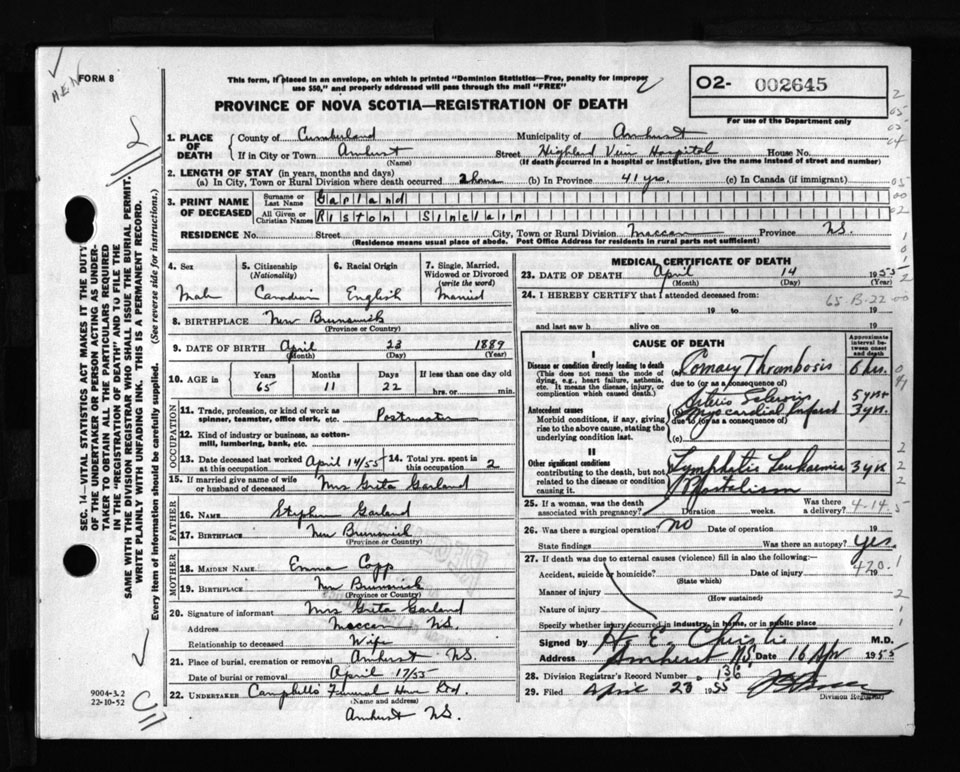 FORM 8
This form, if placed in an envelope, on which is printed "Dominion Statistics—Free, penalty for improper
use $50," and properly addressed will pass through the mail "FREE"
PROVINCE OF NOVA SCOTIA—REGISTRATION OF DEATH
O2- 002645
For use of the Department only
1. PLACE OF DEATH
County of Cumberland Municipality of Amherst
If in City or Town Amherst Street Highland View Hospital House No.
(Name) (If death occurred in a hospital or institution, give the name instead of street and number)
2. LENGTH OF STAY (in years, months and days)
(a) In City, Town or Rural Division where death occurred 2 hours (b) In Province 41 yrs. (c) In Canada (if immigrant)
3. PRINT NAME OF DECEASED
Surname or Last Name Garland
All Given or Christian Names Riston Sinclair
RESIDENCE No. Street City, Town or Rural Division Maccan Province N.S.
(Residence means usual place of abode. Post Office Address for residents in rural parts not sufficient)
4. Sex Male
5. Citizenship (Nationality) Canadian
6. Racial Origin English
7. Single, Married, Widowed or Divorced (write the word) Married
8. BIRTHPLACE New Brunswick
(Province or Country)
9. DATE OF BIRTH April 23 1889
(Month) (Day) (Year)
10. AGE in Years 65 Months 11 Days 22 If less than one day old hrs. or min.
OCCUPATION
11. Trade, profession, or kind of work as spinner, teamster, office clerk, etc. Postmaster
12. Kind of industry or business, as cotton-mill, lumbering, bank, etc.
13. Date deceased last worked at this occupation April 14/55 14. Total yrs. spent in this occupation 2
15. If married give name of wife or husband of deceased Mrs Greta Garland
FATHER
16. NAME Stephen Garland
17. BIRTHPLACE New Brunswick
(Province or Country)
MOTHER
18. MAIDEN NAME Emma Copp
19. BIRTHPLACE New Brunswick
(Province or Country)
20. Signature of informant Mrs Greta Garland
Address Maccan N.S.
Relationship to deceased Wife
21. Place of burial, cremation or removal Amherst N.S.
Date of burial or removal April 17/55
22. UNDERTAKER Campbells Funeral Home Ltd.
(Name and address)
Amherst N.S.
MEDICAL CERTIFICATE OF DEATH
23. DATE OF DEATH April 14 1955
(Month) (Day) (Year)
24. I HEREBY CERTIFY that I attended deceased from:
65-B-22
19 to 19
and last saw h alive on 19
CAUSE OF DEATH
Approximate interval between onset and death
I
Disease or condition directly leading to death
(This does not mean the mode of dying, e.g., heart failure, asthenia, etc. It means the disease, injury, or complication which caused death.)
Coronary Thrombosis 6 hrs.
due to (or as a consequence of)
Antecedent causes
Morbid conditions, if any, giving rise to the above cause, stating the underlying condition last.
(b) 5 yrs
Myocardial Infarct 3 yrs.
due to (or as a consequence of)
(c)
II
Other significant conditions
contributing to the death, but not related to the disease or condition causing it.
Lymphatic Leukaemia 3 yrs
25. If a woman, was the death associated with pregnancy? Duration weeks. Was there a delivery? 4-14-5
26. Was there a surgical operation? no Date of operation 19
State findings Was there an autopsy? Yes
27. If death was due to external causes (violence) fill in also the following:—
Accident, suicide or homicide? Date of injury 19
420.1
(State which)
Manner of injury
(How sustained)
Nature of injury
Specify whether injury occurred in industry, in home, or in public place
Signed by H. E. Christie M.D.
Address Amherst N.S. Date 16 Apr 1955
28. Division Registrar's Record Number 136
29. Filed April 28 1955
Division Registrar
SEC. 14—VITAL STATISTICS ACT MAKES IT THE DUTY
OF THE UNDERTAKER OR PERSON ACTING AS UNDER-
TAKER TO OBTAIN ALL THE PARTICULARS REQUIRED
IN THE "REGISTRATION OF DEATH" AND TO FILE THE
SAME WITH THE DIVISION REGISTRAR WHO SHALL ISSUE THE BURIAL PERMIT.
WRITE PLAINLY WITH UNFADING INK. THIS IS A PERMANENT RECORD.
Every item of information should be carefully supplied. (See reverse side for instructions.)
9004-3.2
22-10-52